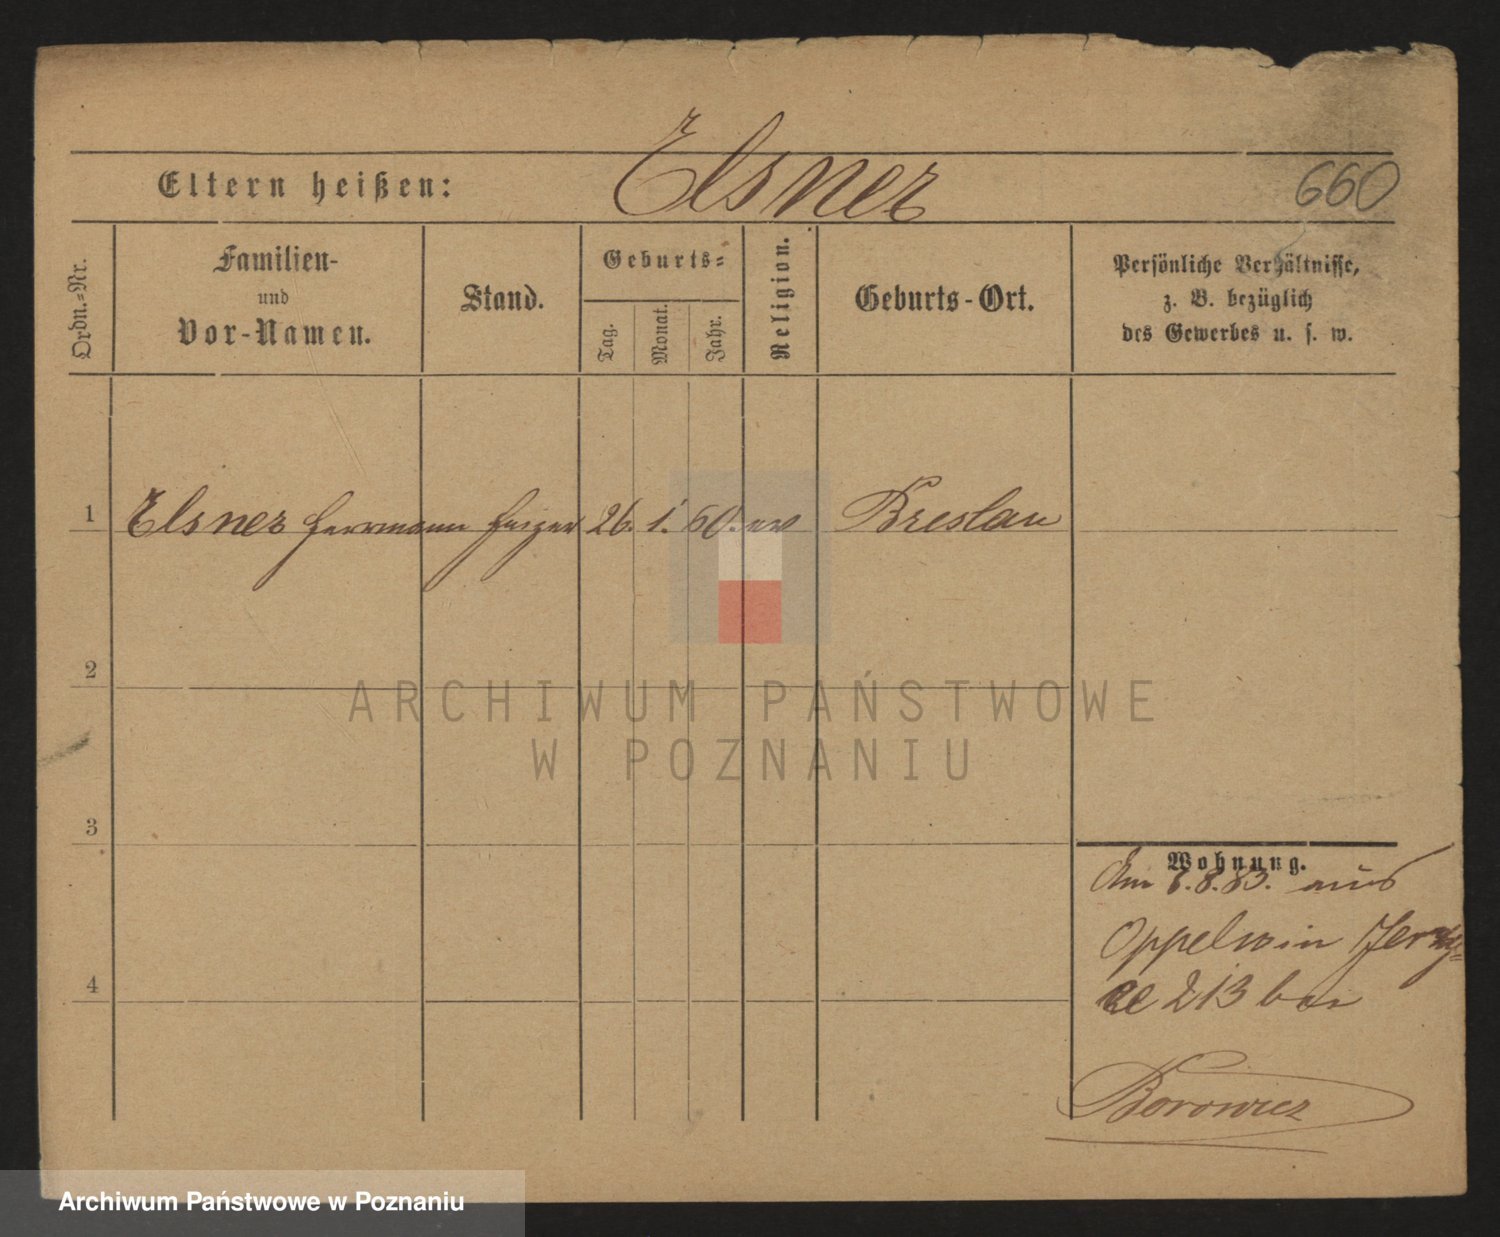 Elsner
Eltern heißen:
660
Ordn.=Nr.
Familien-
und
Vor-Namen.
Stand.
Geburts=
Tag.
Monat.
Jahr.
Religion.
Geburts-Ort.
Persönliche Verhältnisse,
z. B. bezüglich
des Gewerbes u. s. w.
1 Elsner Herrmann 26. 1. 60. ev Breslau
2
ARCHIWUM PAŃSTWOWE
W POZNANIU
3
Wohnung.
Am 8. aus
4
213 bei
Borowicz
Archiwum Państwowe w Poznaniu